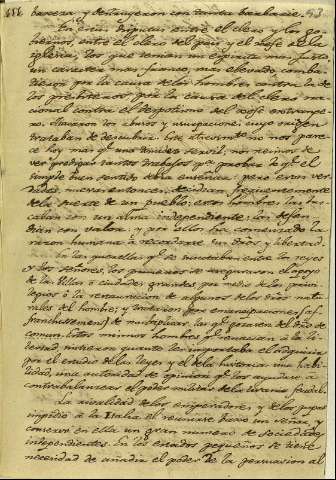 y destruyeron con tanta barbarie.
En estas disputas entre el clero y los go-
biernos, entre el clero del pais y el xefe de la
Iglesia, los que tenian un espiritu mas justo,
un caracter mas firme, mas elevado, comba-
tieron por la causa de los hombres contra la de
los por la causa del clero na-
cional contra el despotismo del xefe extrange-
ro. Atacaron los abusos y usurpaciones cuyo origen
trataban de descubrir. Este atrevimiento no nos pare-
ce hoy mas que una timidez servil, nos reimos de
ver prodigar tantos trabajos para probar lo que el
simple buen sentido debia enseñar; pero eran ver-
dades nuevas entonces, decidian frequentemente
de la suerte de un pueblo: estos hombres las bus-
caban con un alma independiente: las defen-
dian con valor: y por ellos ha comenzado la
razon humana á recordarse sus dros y libertad
En las querellas que se suscitaban entre los reyes
y los señores, los primeros se aseguraron el apoyo
de las villas ó ciudades grandes por medio de los privi-
legios ó la restauracion de algunos de los dros natu-
rales del hombre; y trataron por emancipaciones (af-
franchissement) de multiplicar las que gozaren del dro de
comun. Estos mismos hombres que renacian á la li-
bertad notaron quanto les importaba el adquirir
por el estudio de las leyes y el de la historia una habi-
lidad, una autoridad de opinion que les ayudase á
contrabalancear el poder militar de la tirania feudal.
La rivalidad de los emperadores y de los papas
impidió á la Italia el reunirse baxo un señor, y
conservó en ella un gran numero de sociedades
independientes. En los estados pequeños se tiene
necesidad de añadir el poder de la persuasion al